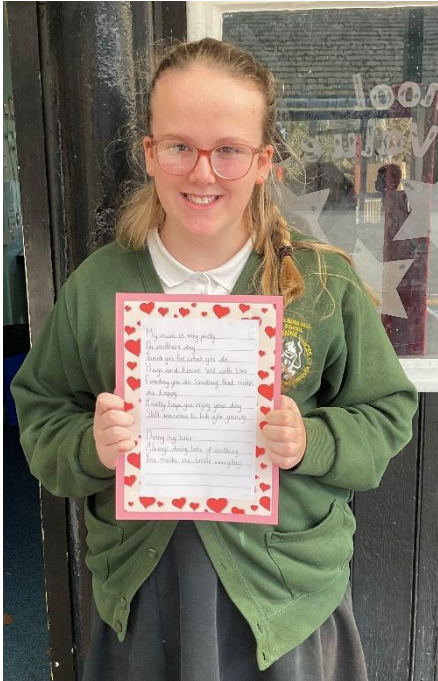 ool
Value
My mum is very pretty
On mothers day
Thank you for what you do
Hugs and kisses said with love
Everyday you do something that makes
me happy
Really hope you enjoy your day
Still remember to look after yourself
Doing my hair
Always doing lots of walking
You make me smile everyday
SCHOOL